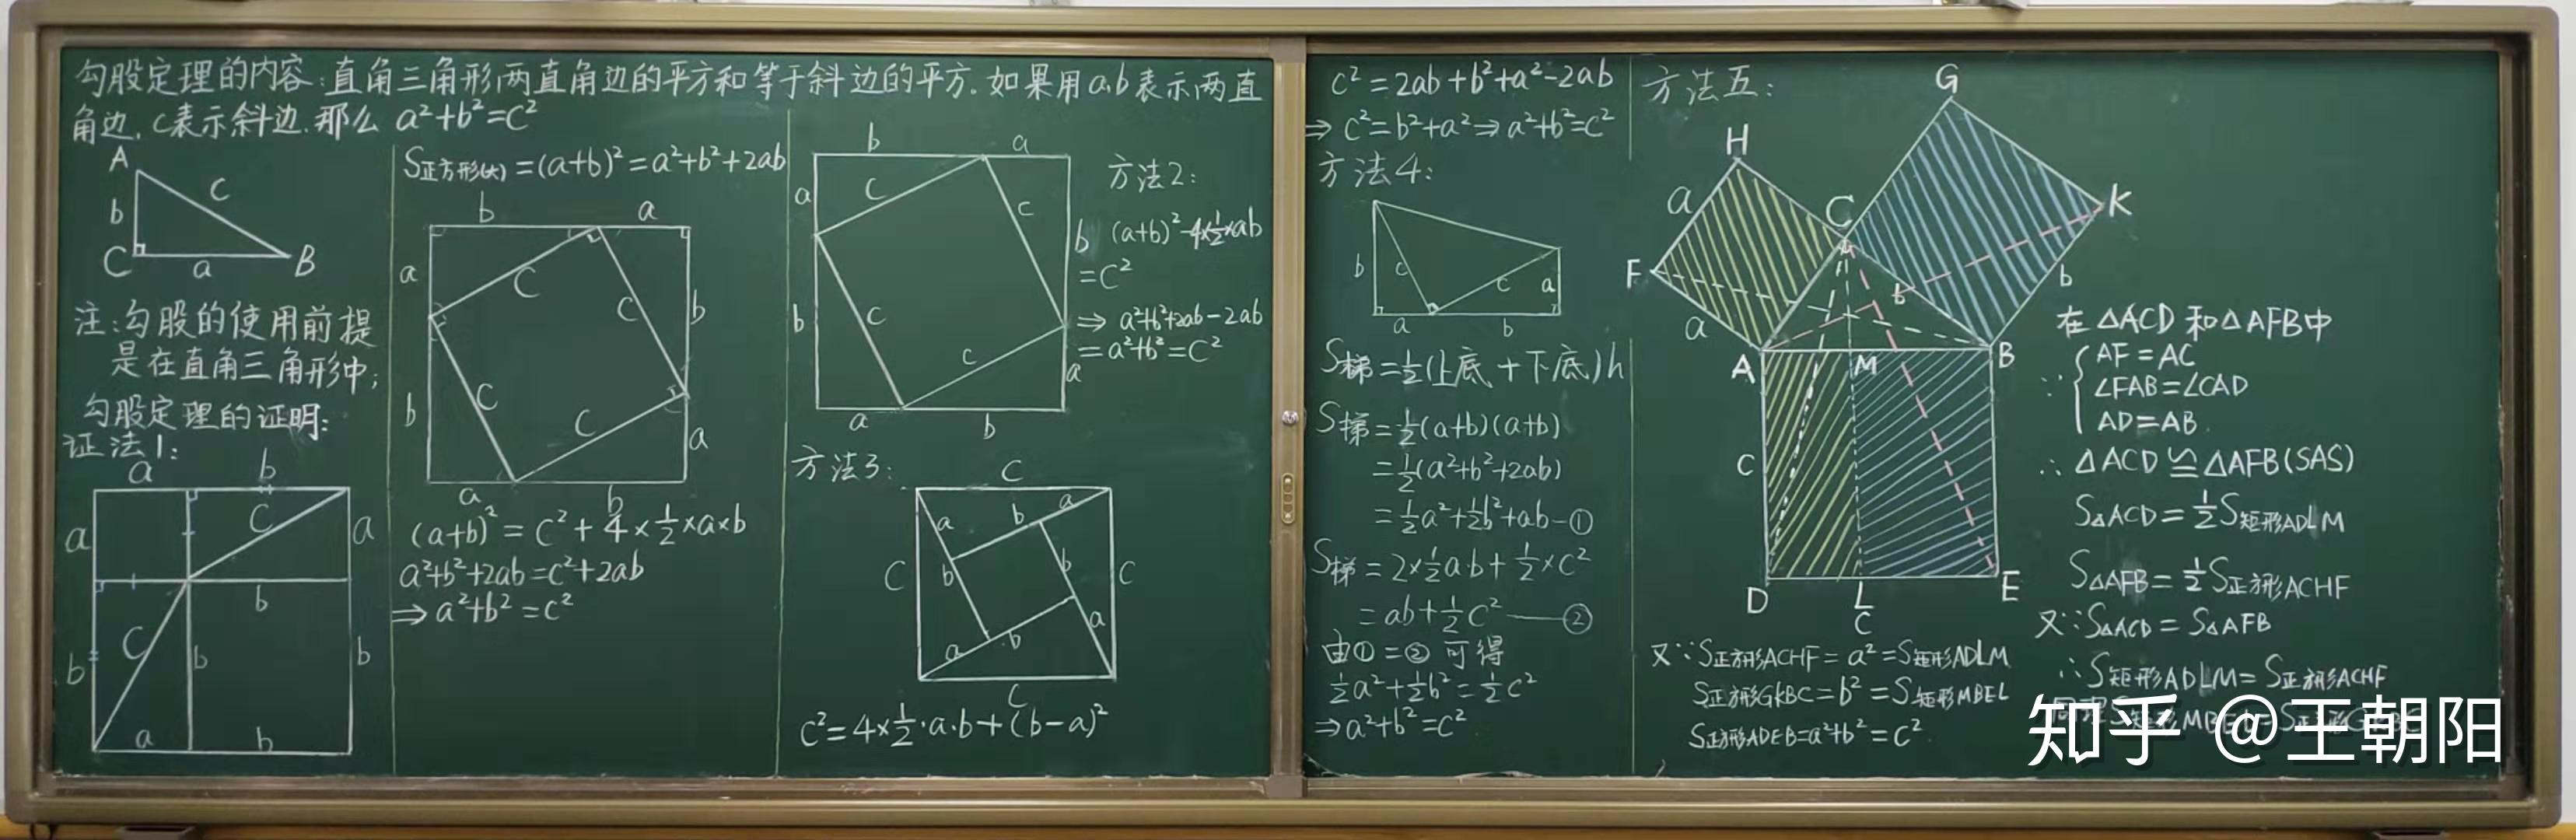 勾股定理的内容:直角三角形两直角边的平方和等于斜边的平方.如果用a,b表示两直
角边,c表示斜边.那么 a²+b²=c²
A
b
c
C
a
B
注:勾股的使用前提
是在直角三角形中;
勾股定理的证明:
证法1:
a
b
a
C
a
b
C
b
b
a
b
S正方形(大)=(a+b)²=a²+b²+2ab
b
a
a
C
C
b
b
C
C
a
a
b
(a+b)²=C²+4×½×a×b
a²+b²+2ab=c²+2ab
⇒a²+b²=c²
b
a
a
C
c
b
b
c
c
a
a
b
方法2:
(a+b)²-4×½×ab
=C²
⇒ a²+b²+2ab-2ab
=a²+b²=C²
方法3:
C
a
b
a
C
b
b
C
a
b
a
C
c²=4×½·a·b+(b-a)²
c²=2ab+b²+a²-2ab
⇒ c²=b²+a²⇒a²+b²=c²
方法4:
b
c
c
a
a
b
S梯=½(上底+下底)h
S梯=½(a+b)(a+b)
=½(a²+b²+2ab)
=½a²+½b²+ab—①
S梯=2×½a·b+½×c²
=ab+½c²——②
由①=②可得
½a²+½b²=½c²
⇒a²+b²=c²
方法五:
G
H
a
C
K
F
b
b
a
A
M
B
C
D
L
E
C
在△ACD和△AFB中
AF=AC
∵ ∠FAB=∠CAD
AD=AB
∴△ACD≌△AFB(SAS)
S△ACD=½S矩形ADLM
S△AFB=½S正方形ACHF
又∵S△ACD=S△AFB
∴S矩形ADLM=S正方形ACHF
同理S矩形MBEL=S正方形GKBC
又∵S正方形ACHF=a²=S矩形ADLM
S正方形GKBC=b²=S矩形MBEL
S正方形ADEB=a²+b²=c²
知乎 @王朝阳